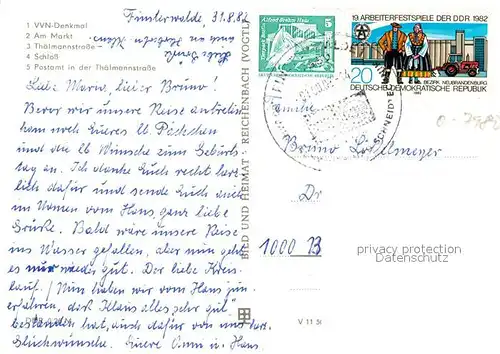 Finsterwalde, 31.8.82
1 VVN-Denkmal
2 Am Markt
3 Thälmannstraße
4 Schloß
5 Postamt in der Thälmannstraße
Liebe Maria, lieber Bruno!
Bevor wir unsere Reise antreten
kam noch Eueres lb. Päckchen
und die lb Wünsche zum Geburts-
tag an. Ich danke Euch recht herz-
lich dafür und sende Euch auch
im Namen vom Hans, ganz liebe
Grüße. Bald wäre unsere Reise
ins Wasser gefallen, aber nun geht
es mir wieder gut. Der liebe Kreis-
lauf! Nun haben wir vom Hans jun.
erfahren, daß Klaus alles sehr gut
bestanden hat, auch dafür von uns herz.
Glückwünsche. Euere Anni u. Hans.
BILD UND HEIMAT · REICHENBACH (VOGTL
Alfred Brehm Haus
Tierpark Berlin
5
DDR
19. ARBEITERFESTSPIELE DER DDR 1982
20
BEZIRK NEUBRANDENBURG
DEUTSCHE DEMOKRATISCHE REPUBLIK
Familie
Bruno
Dr
1000 B
privacy protection
Datenschutz
V 11 50